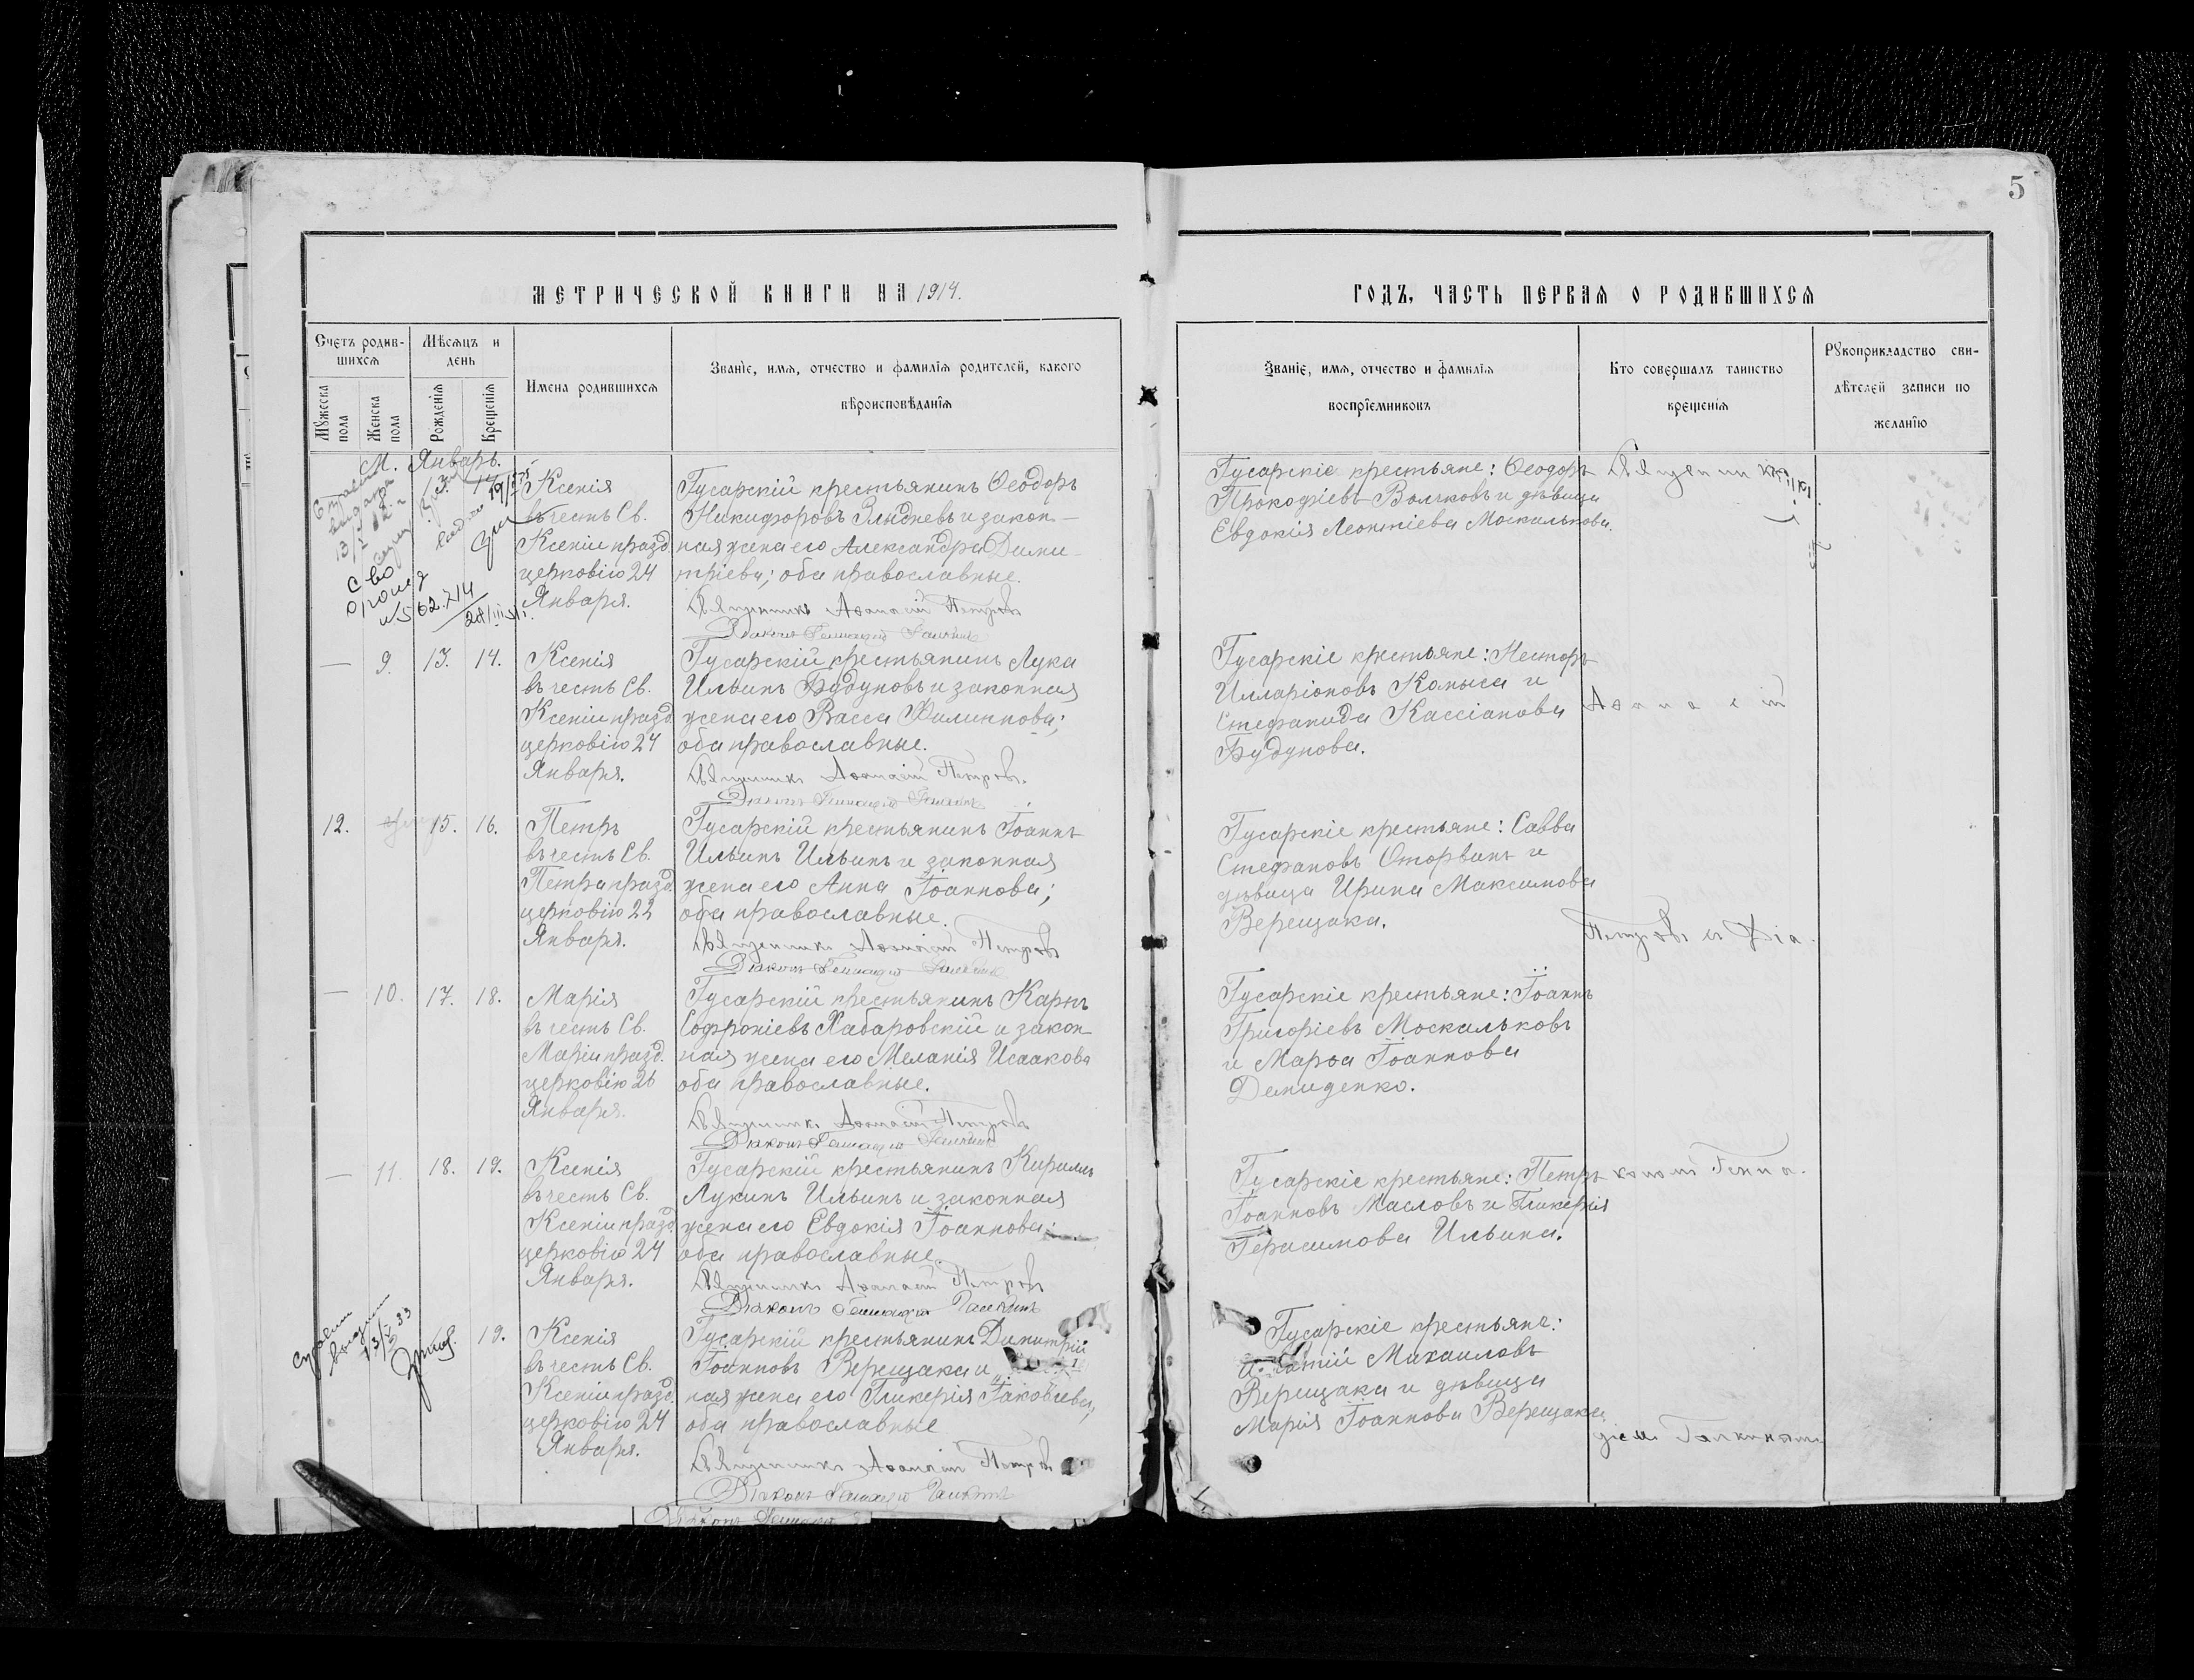 5
МЕТРИЧЕСКОЙ КНИГИ НА 1914.
Счетъ родив-
шихся
Мѣсяцъ и
день
Мужеска пола
Женска пола
Рожденія
Крещенія
Имена родившихся
Званіе, имя, отчество и фамилія родителей, какого
вѣроисповѣданія
М. Январь.
13.
Ксенія
въ честь Св.
Ксеніи празд.
церковію 24
Января.
Гусарскій крестьянинъ Ѳеодоръ
Никифоровъ Злыдневъ и закон-
ная жена его Александра Дими-
тріева; оба православные.
Священникъ Аѳанасій Петровъ
Діаконъ Геннадій Галкинъ
—
9.
13.
14.
Ксенія
въ честь Св.
Ксеніи празд.
церковію 24
Января.
Гусарскій крестьянинъ Лука
Ильинъ Будуновъ и законная
жена его Васса Филиппова;
оба православные.
Священникъ Аѳанасій Петровъ.
Діаконъ Геннадій Галкинъ
12.
15.
16.
Петръ
въ честь Св.
Петра празд.
церковію 22
Января.
Гусарскій крестьянинъ Іоаннъ
Ильинъ Ильинъ и законная
жена его Анна Іоаннова;
оба православные.
Священникъ Аѳанасій Петровъ
Діаконъ Геннадій Галкинъ
—
10.
17.
18.
Марія
въ честь Св.
Маріи празд.
церковію 26
Января.
Гусарскій крестьянинъ Карпъ
Софроніевъ Хабаровскій и закон-
ная жена его Меланія Исаакова
оба православные.
Священникъ Аѳанасій Петровъ
Діаконъ Геннадій Галкинъ
—
11.
18.
19.
Ксенія
въ честь Св.
Ксеніи празд.
церковію 24
Января.
Гусарскій крестьянинъ Кириллъ
Лукинъ Ильинъ и законная
жена его Евдокія Іоаннова;
оба православные.
Священникъ Аѳанасій Петровъ
Діаконъ Геннадій Галкинъ
19.
Ксенія
въ честь Св.
Ксеніи празд.
церковію 24
Января.
Гусарскій крестьянинъ Димитрій
Іоанновъ Верещака и
ная жена его Гликерія Іаковлева;
оба православные
Священникъ Аѳанасій Петровъ
Діаконъ Геннадій Галкинъ
ГОДЪ, ЧАСТЬ ПЕРВАЯ О РОДИВШИХСЯ
Званіе, имя, отчество и фамилія
воспріемниковъ
Кто совершалъ таинство
крещенія
Рукоприкладство сви-
дѣтелей записи по
желанію
Гусарскіе крестьяне: Ѳеодоръ
Прокофіевъ Волчковъ и дѣвица
Евдокія Леонтіева Москалькова.
Гусарскіе крестьяне: Несторъ
Илларіоновъ Комыса и
Стефанида Кассіанова
Будунова.
Гусарскіе крестьяне: Савва
Стефановъ Оторвинъ и
дѣвица Ирина Максимова
Верещака.
Гусарскіе крестьяне: Іоаннъ
Григоріевъ Москальковъ
и Марѳа Іоаннова
Демиденко.
Гусарскіе крестьяне: Петръ
Іоанновъ Масловъ и Гликерія
Герасимова Ильина.
Гусарскіе крестьяне:
Михаиловъ
Верещака и дѣвица
Марія Іоаннова Верещака
Священникъ
Аѳанасій
Петровъ съ Діа-
кономъ Генна-
діемъ Галкинымъ